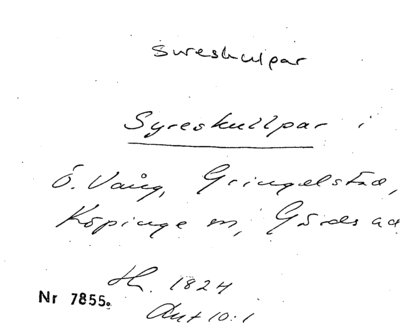 sureskulpar
Syreskullpar i
Ö. Vång, Gringelstad,
Köpinge sn, Gärds
Hh. 1824
Ant 10:1
Nr 7855.